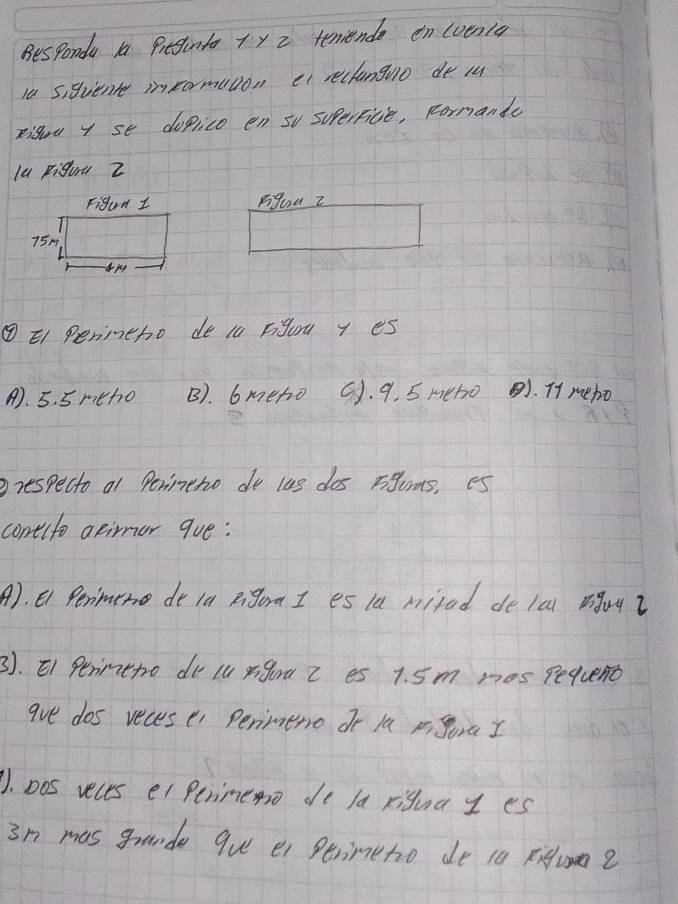 Responda la Pregunta 1 y 2 teniendo en cuenta
la siguiente información el rectangulo de la
Figura 1 se duplico en su superficie, Formando
la Figura 2
Figura 1
Figura 2
1.5m
4m
① El Perimetro de la Figura 1 es
A). 5.5 metro B). 6 metro C). 9.5 metro D). 11 metro
respecto al Perimetro de las dos Figuras, es
correcto afirmar que:
A). El Perimetro de la Figura 1 es la mitad de la Figura 2
B). El Perimetro de la Figura 2 es 1.5m mas Pequeño
que dos veces el Perimetro de la Figura 1
). Dos veces el Perimetro de la Figura 1 es
3m mas grande que el Perimetro de la Figura 2